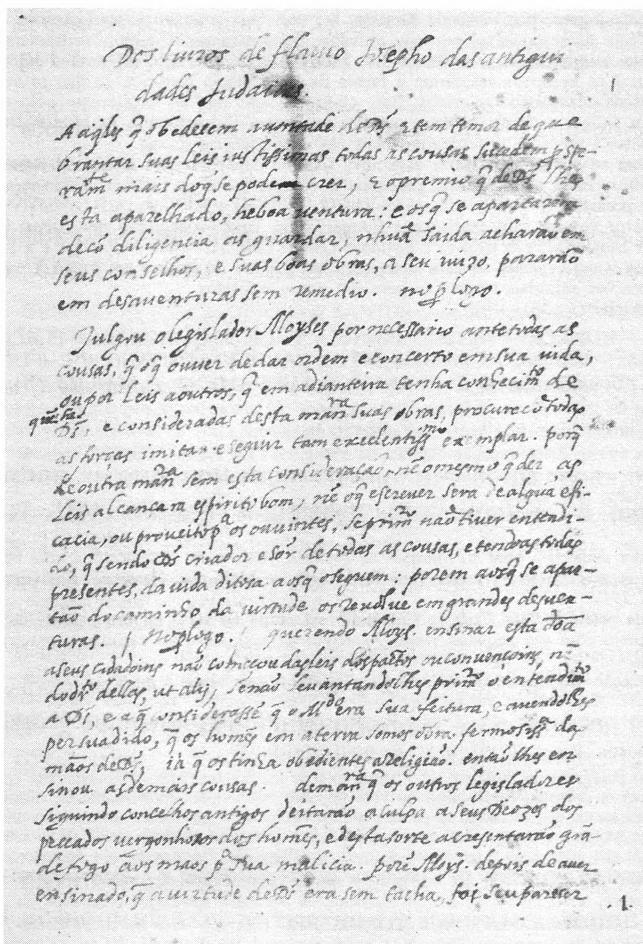 Dos livros de flavio Josepho das antigui
dades Judaicas.
A aq̃les q̃ obedecem a vontade de Ds̃ e tem temor de que
brantar suas leis iustissimas todas as cousas sucedem
mais do q̃ se podem crer, e o premio q̃ de Ds̃ lhes
esta aparelhado, he boa ventura: e os q̃ se apartarem
de cõ diligencia as guardar, nhuã saida acharaõ em
seus conselhos, e suas boas obras, a seu iuizo, pararaõ
em desaventuras sem remedio. no plogo.
Julgou o legislador Moyses por necessario ante todas as
cousas, q̃ o q̃ ouver de dar ordem e concerto em sua vida,
ou por leis a outros, q̃ em adianteira tenha conhecimto de
Ds̃, e consideradas desta manra suas obras, procure cõ todas
as forças imitar e seguir tam excelentissimo exemplar. porq̃
de outra manra sem esta consideraçaõ, nẽ o mesmo q̃ der as
leis alcançara espirito bom, nẽ o q̃ escrever sera de algũa effi-
cacia, ou proveito pa os ouvintes, se primro naõ tiver entendi-
do, q̃ sendo Ds̃ criador e sõr de todas as cousas, e tendoas todas
presentes, da vida ditosa aos q̃ o seguem: porem aos q̃ se apar-
taõ do caminho da virtude os revolve em grandes desven-
turas. / No plogo. / querendo Moys. ensinar esta
a seus cidadoins naõ comecou das leis dos pactos ou convencoins, nẽ
do dito dellas, ut alij, senaõ levantandolhes primro o entendimto
a Ds̃, e a q̃ considerassẽ q̃ o Mdo era sua feitura, e avendolhes
persuadido, q̃ os homẽs em a terra somos obra fermosissa das
maõs de Ds̃, ia q̃ os tinha obedientes a religiaõ: entaõ lhes en
sinou as demais cousas. de manra q̃ os outros legisladores
siguindo concelhos antigos deitaraõ a culpa a seus Deozes dos
peccados vergonhosos dos homẽs, e desta sorte acresentaraõ grã
de fogo aos maos pa sua malicia. porẽ Moys. depois de aver
ensinado, q̃ a virtude de Ds̃ era sem tacha, foi seu pareser
1